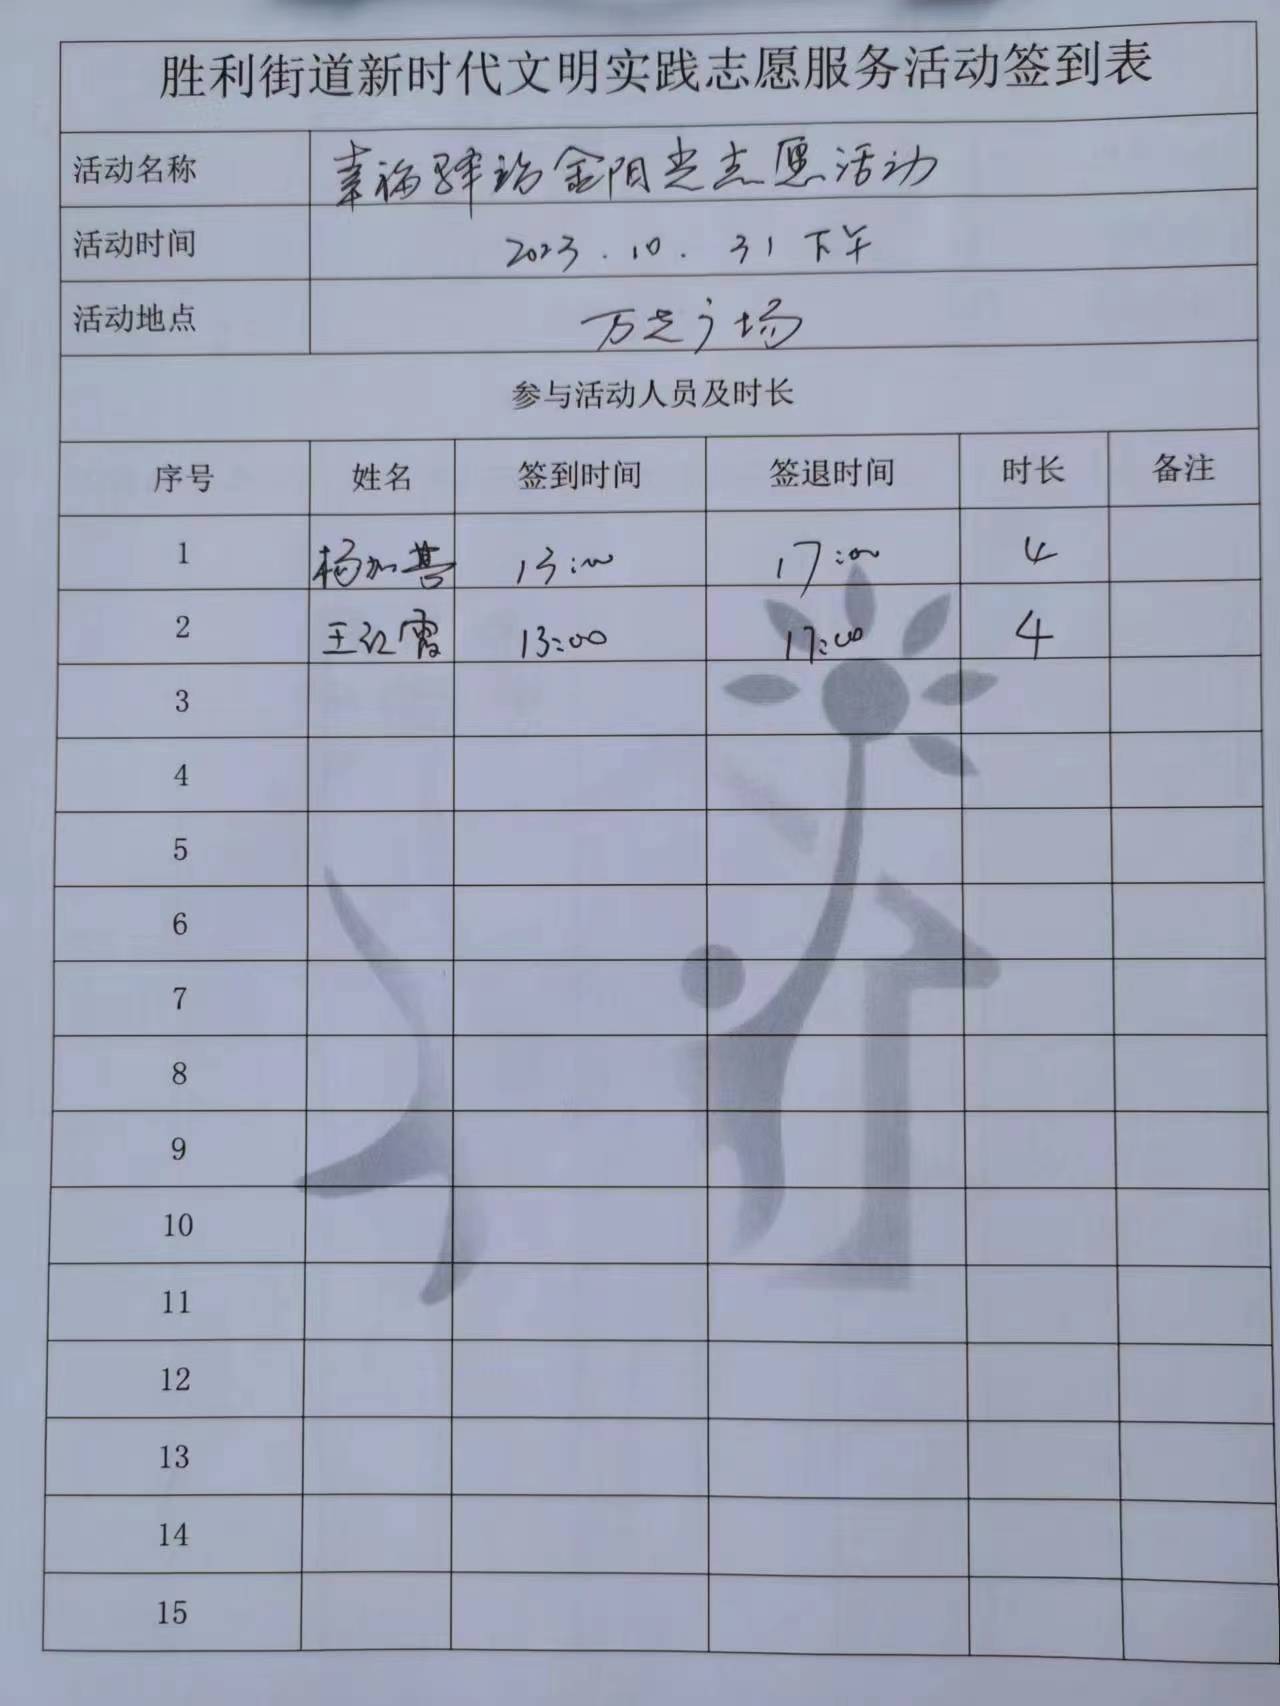 胜利街道新时代文明实践志愿服务活动签到表
活动名称 幸福驿站金阳光志愿活动
活动时间 2023.10.31下午
活动地点 万达广场
参与活动人员及时长
序号 姓名 签到时间 签退时间 时长 备注
1 杨加 13:00 17:00 4
2 王红霞 13:00 17:00 4
3
4
5
6
7
8
9
10
11
12
13
14
15